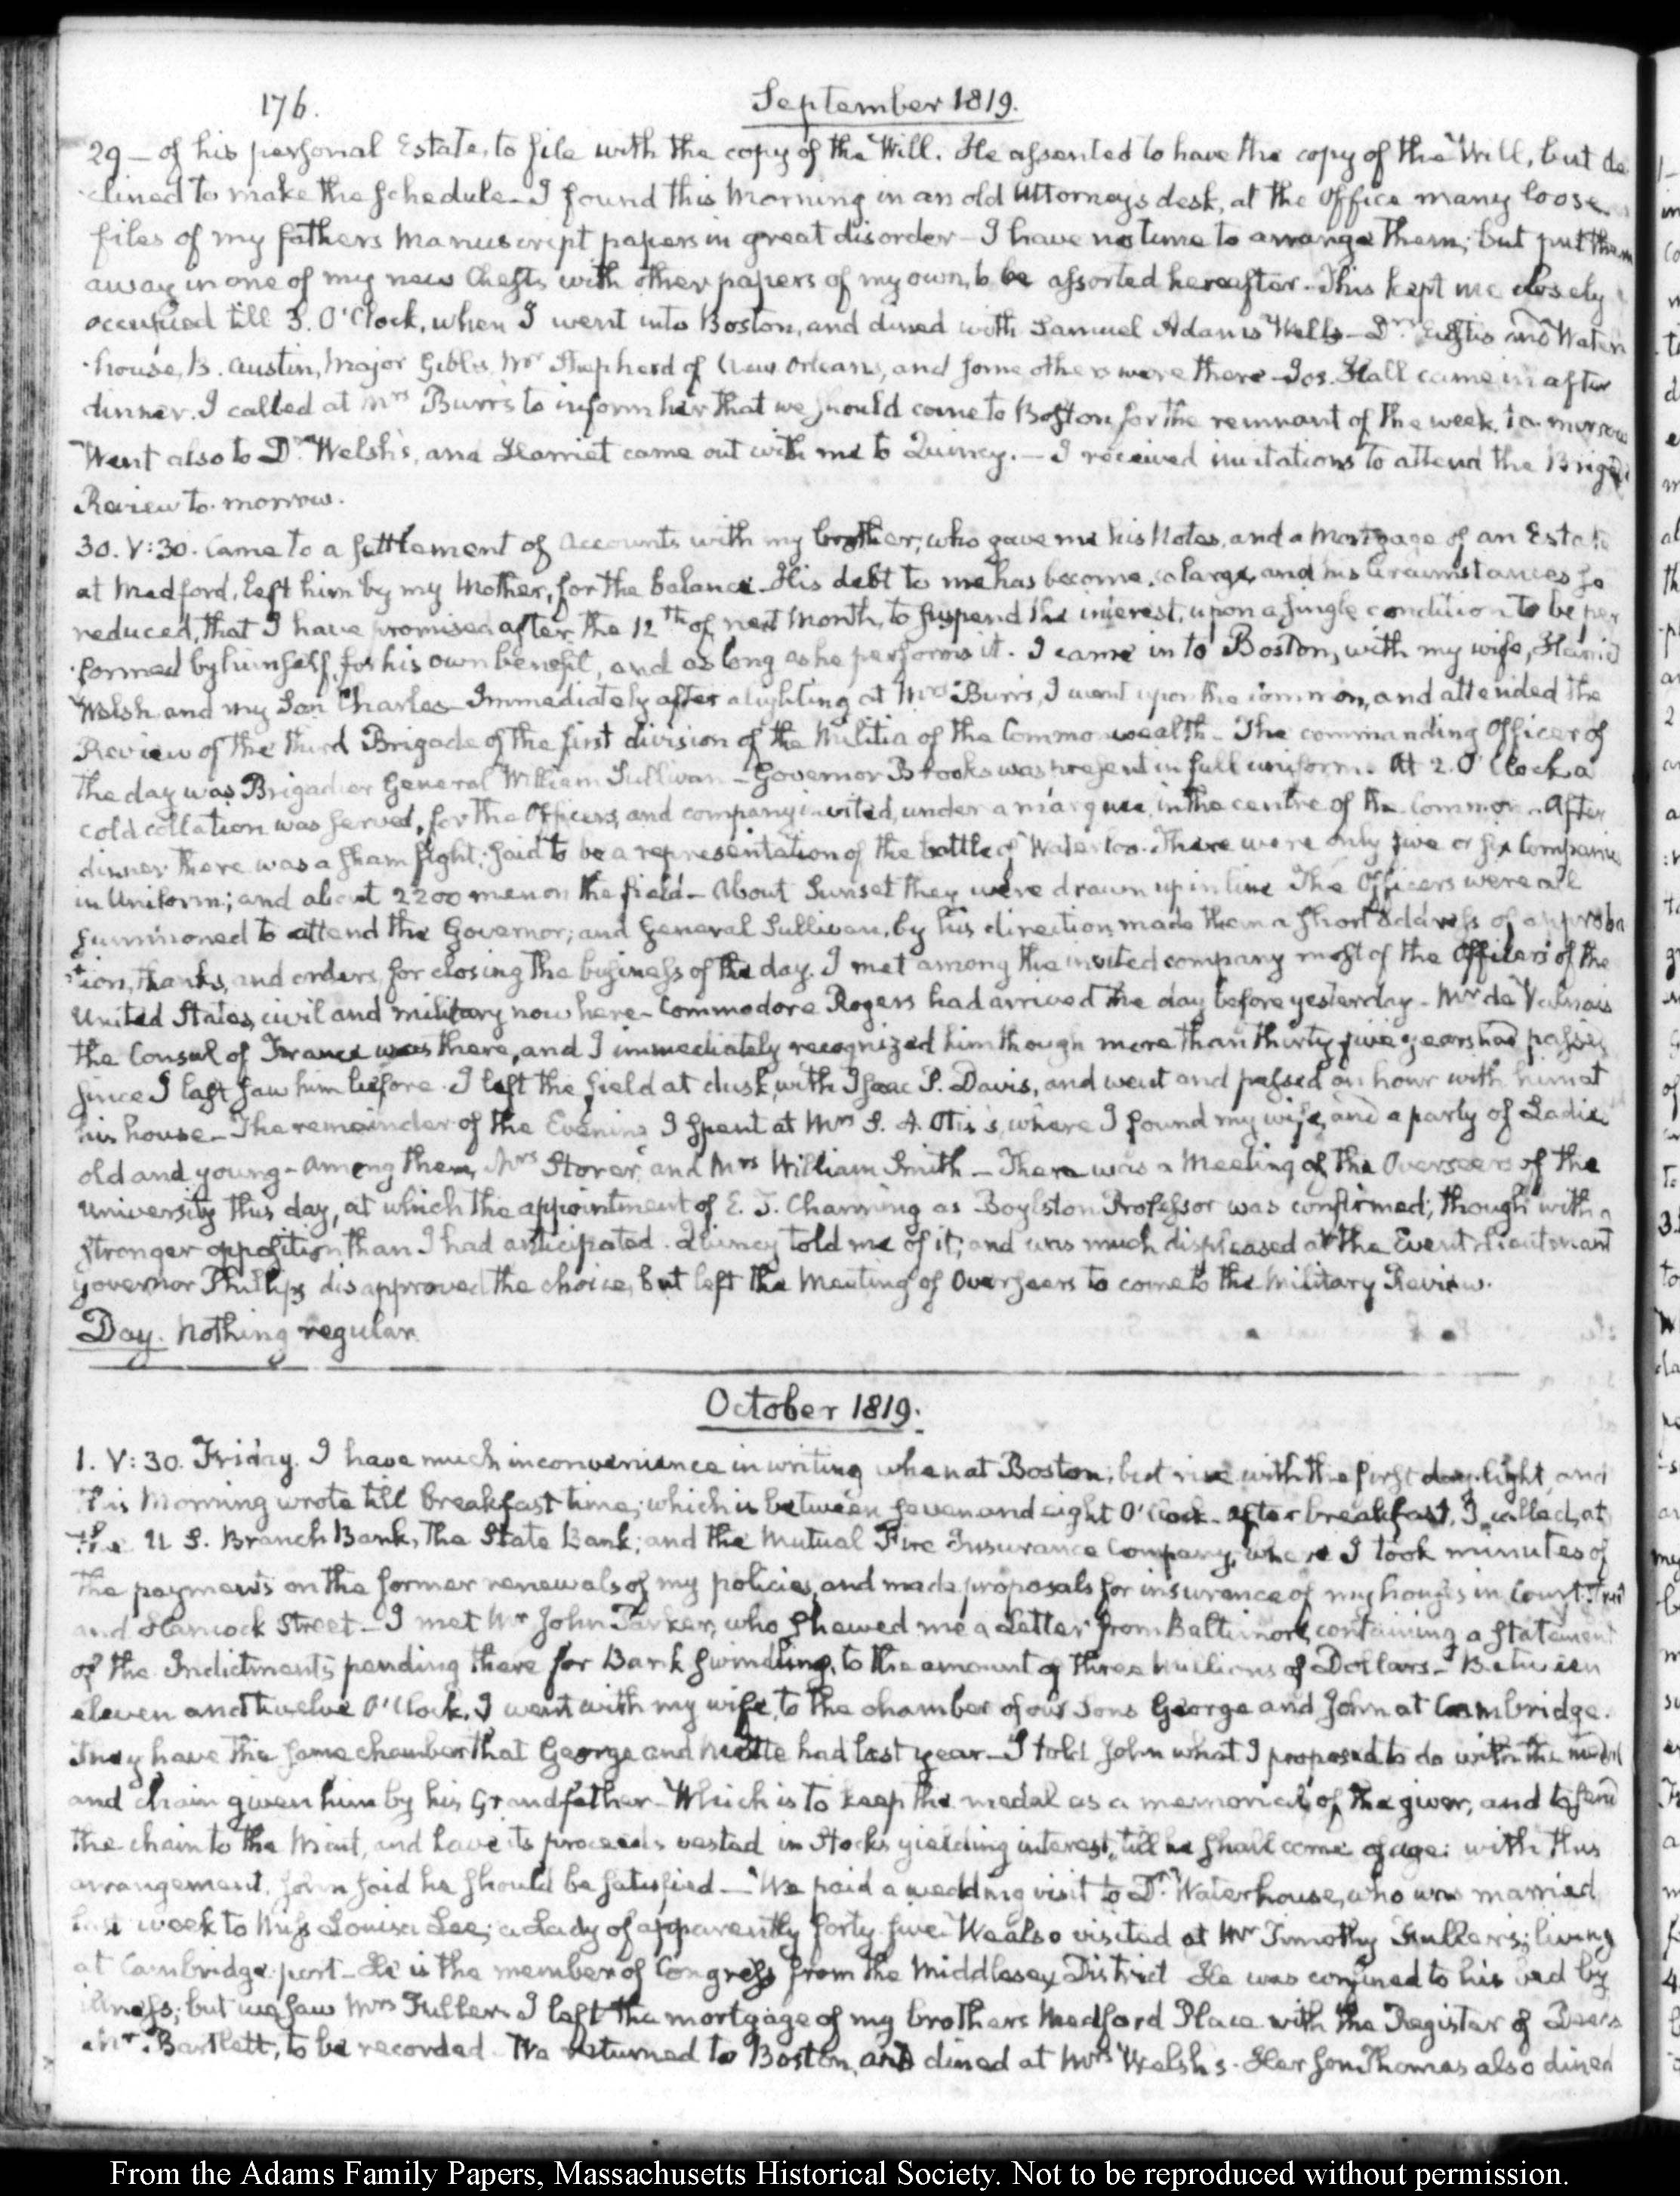 176.
September 1819.
29 — of his personal Estate, to file with the copy of the Will. He assented to have the copy of the Will, but de
clined to make the schedule — I found this Morning in an old Attorney's desk, at the Office many loose
files of my fathers Manuscript papers in great disorder — I have no time to arrange them; but put them
away in one of my new Chests, with other papers of my own, to be assorted hereafter. This kept me closely
occupied till 3. O'Clock, when I went into Boston, and dined with Samuel Adams Wells — Drs. Eustis and Water
house, B. Austin, Major Gibbs, Mr Shepherd of New Orleans, and some others were there — Jos. Hall came in after
dinner. I called at Mrs Burr's to inform her that we should come to Boston for the remnant of the week, to-morrow
Went also to Dr Welsh's, and Harriet came out with me to Quincy. — I received invitations to attend the Brigade
Review to-morrow.
30. V:30. Came to a settlement of Accounts with my brother, who gave me his Notes, and a Mortgage of an Estate
at Medford, left him by my Mother, for the balance — His debt to me has become so large, and his circumstances so
reduced, that I have promised after the 12th of next Month, to suspend the interest, upon a single condition to be per
formed by himself, for his own benefit, and as long as he performs it. I came in to Boston, with my wife, Harriet
Welsh and my Son Charles — Immediately after alighting at Mrs Burr's, I went upon the common, and attended the
Review of the third Brigade of the first division of the Militia of the Commonwealth — The commanding Officer of
the day was Brigadier General William Sullivan — Governor Brooks was present in full uniform. At 2. O'Clock a
cold collation was served, for the Officers, and company invited, under a marquee in the centre of the Common — After
dinner there was a sham fight; said to be a representation of the battle of Waterloo. There were only five or six Companies
in Uniform; and about 2200 men on the field — About Sunset they were drawn up in line The Officers were all
summoned to attend the Governor; and General Sullivan, by his direction made them a short address of approba
tion, thanks, and orders for closing the business of the day. I met among the invited company most of the Officers of the
United States, civil and military now here — Commodore Rogers had arrived the day before yesterday — Mr de Valnais
the Consul of France was there, and I immediately recognized him though more than thirty five years had passed
since I last saw him before. I left the field at dusk, with Isaac P. Davis, and went and passed an hour with him at
his house — The remainder of the Evening I spent at Mrs S. A. Otis's, where I found my wife, and a party of Ladies
old and young — Among them, Mrs Storer, and Mrs William Smith — There was a Meeting of the Overseers of the
University this day, at which the appointment of E. T. Channing as Boylston Professor was confirmed; though with a
stronger opposition than I had anticipated. Quincy told me of it; and was much displeased at the Event. Lieutenant
Governor Phillips disapproved the choice, but left the Meeting of Overseers to come to the Military Review.
Day. Nothing regular.
October 1819.
1. V:30. Friday. I have much inconvenience in writing when at Boston; but rise with the first day-light, and
this Morning wrote till breakfast time; which is between seven and eight O'Clock. After breakfast, I called at
the U. S. Branch Bank, the State Bank; and the Mutual Fire Insurance Company, where I took minutes of
the payments on the former renewals of my policies, and made proposals for insurance of my houses in Court Street
and Hancock Street — I met Mr John Parker, who shewed me a Letter from Baltimore, containing a statement
of the Indictments pending there for Bank swindling, to the amount of three Millions of Dollars — Between
eleven and twelve O'Clock, I went with my wife, to the chamber of our Sons George and John at Cambridge.
They have the same chamber that George and had last year — I told John what I proposed to do with the medal
and chain given him by his Grandfather — Which is to keep the medal as a memorial of the giver, and to send
the chain to the Mint, and have its proceeds vested in Stocks yielding interest, till he shall come of age: with this
arrangement, John said he should be satisfied — We paid a wedding visit to Dr Waterhouse, who was married
last week to Miss Louisa Lee; a Lady of apparently forty five We also visited at Mr Timothy Fuller's; living
at Cambridge-port — He is the member of Congress from the Middlesex District He was confined to his bed by
illness; but we saw Mrs Fuller. I left the mortgage of my brothers Medford Place with the Register of Deeds
Mr. Bartlett, to be recorded. We returned to Boston, and dined at Mrs Welsh's. Her son Thomas also dined
From the Adams Family Papers, Massachusetts Historical Society. Not to be reproduced without permission.